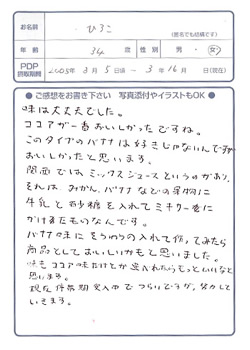 お名前 ひろこ
(匿名でも結構です)
年齢 34歳 性別 男・女
PDP
摂取期間 2005年3月5日頃 ~ 3年16日(現在)
● ご感想をお書き下さい 写真添付やイラストもOK ●
味は大丈夫でした。
ココアが一番おいしかったですね。
このタイプのバナナは好きじゃないんですが
おいしかったと思います。
関西ではミックスジュースというのがあり、
それは、みかん、バナナなどの果物に
牛乳と砂糖を入れてミキサー等に
かけるたものなんです。
バナナ味にそういうの入れて作ってみたら
商品としておいしいかもと思いました。
味もココア味だけとか選べれたらもっといいなと
思います。
現在停滞期突入中でつらいどうが、努力して
いきます。